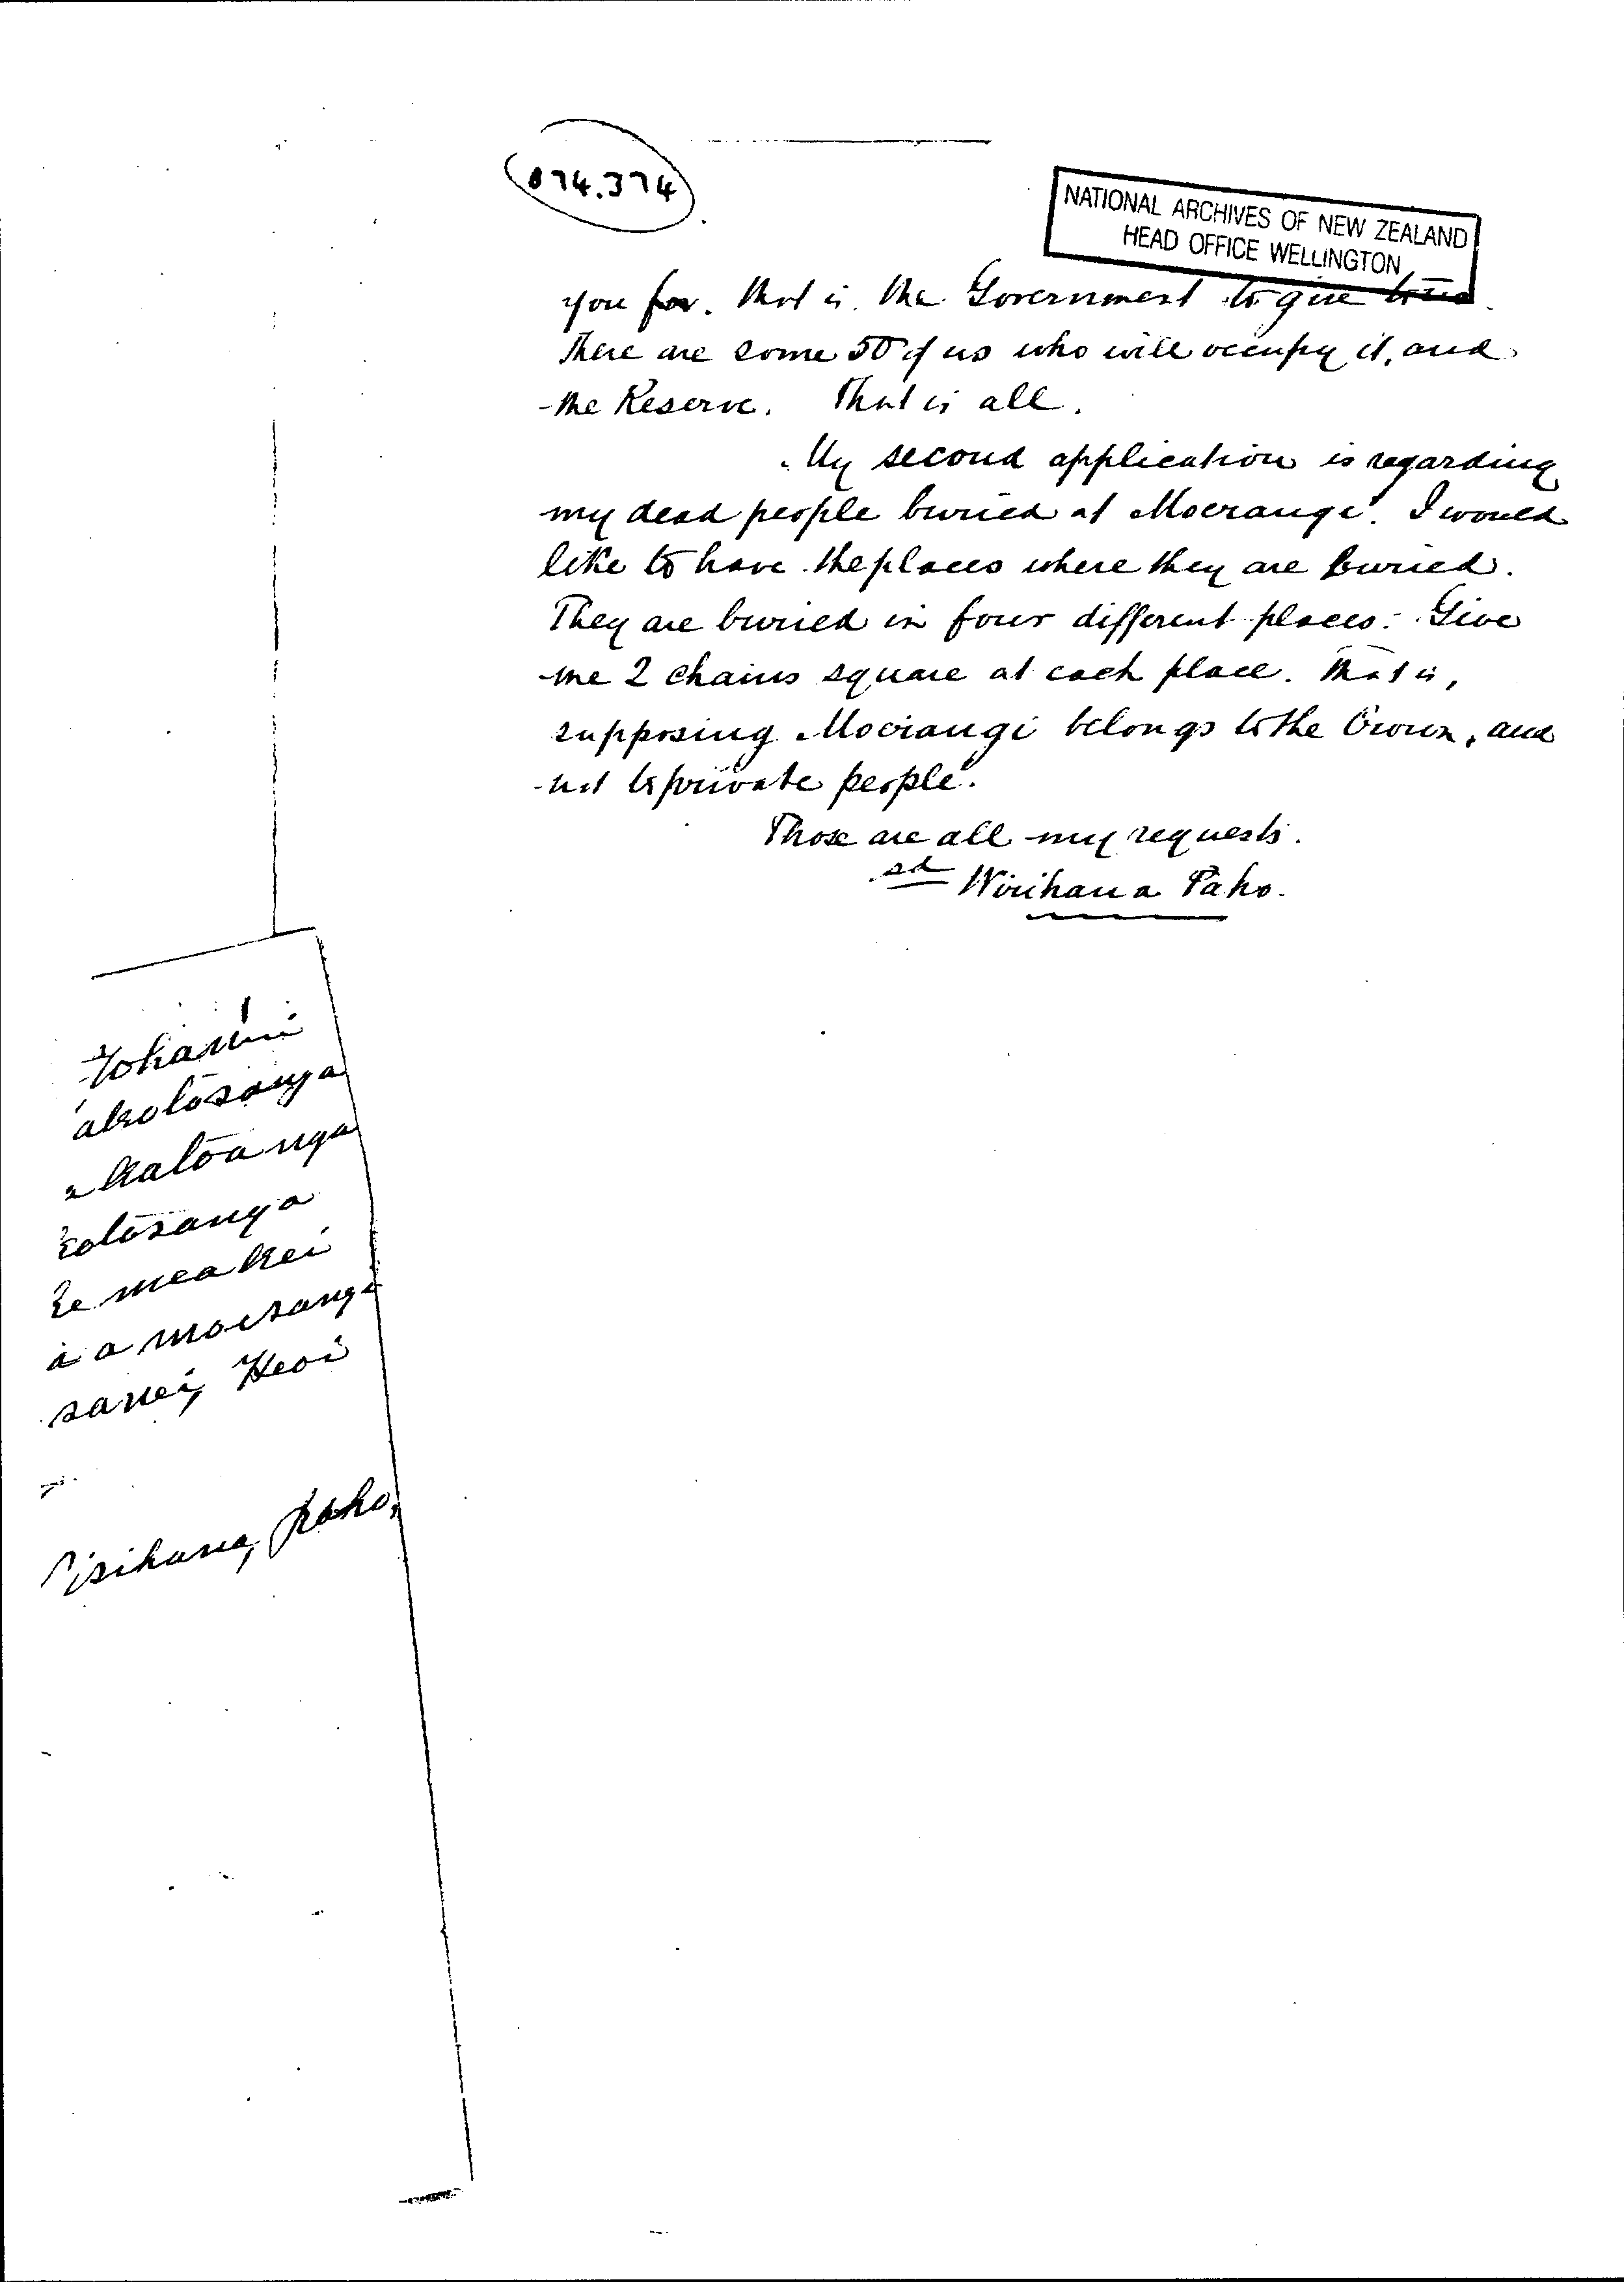 874.374
NATIONAL ARCHIVES OF NEW ZEALAND
HEAD OFFICE WELLINGTON
you for. that is. the Government to give to us.
There are some 50 of us who will occupy it, and
the Reserve. That is all.
My second application is regarding
my dead people buried at Moerangi. I would
like to have the places where they are buried.
They are buried in four different places. Give
me 2 chains square at each place. That is,
supposing Moerangi belongs to the Crown, and
not to private people.
Those are all my requests.
sd Wirihana Paho.
katoa nga
te mea kei
a moerangi
Heoi
irihana, Paho,